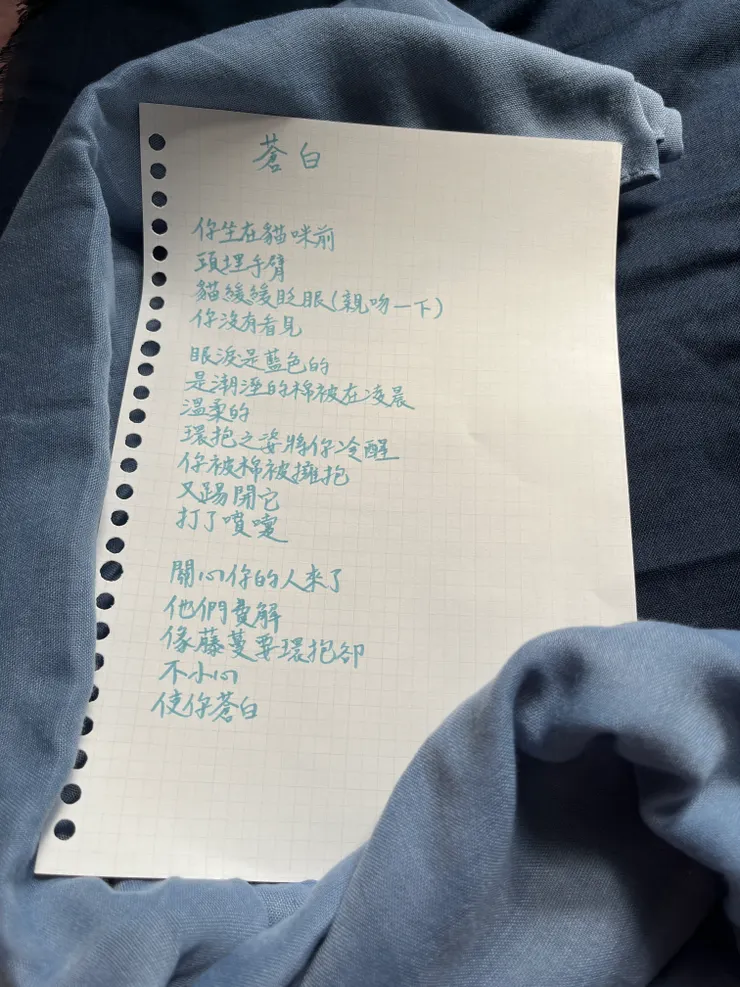 蒼白
你坐在貓咪前
頭埋手臂
貓緩緩眨眼(親吻一下)
你沒有看見
眼淚是藍色的
是潮溼的棉被在凌晨
溫柔的
環抱之姿將你冷醒
你被棉被擁抱
又踢開它
打了噴嚏
關心你的人來了
他們費解
像藤蔓要環抱卻
不小心
使你蒼白